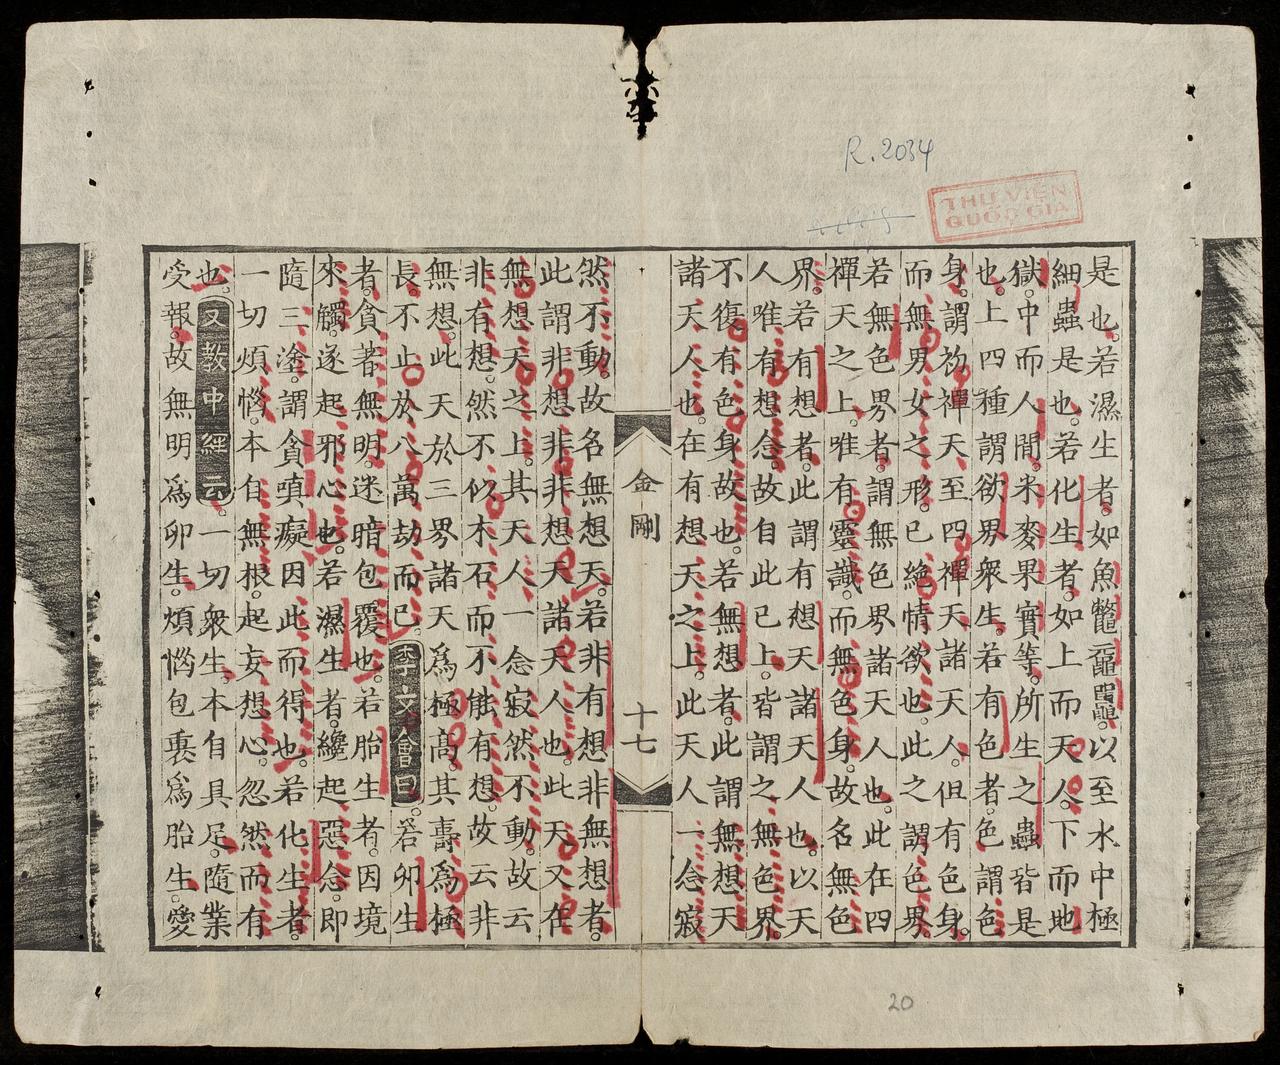 R.2034
THƯ VIỆN
QUỐC GIA
是也。若濕生者。如魚鼈黿鼉。以至水中極
細蟲是也。若化生者。如上而天人。下而地
獄。中而人間。米麥果實等。所生之蟲皆是
也。上四種謂欲界衆生。若有色者。色謂色
身。謂初禪天至四禪天諸天人。但有色身。
而無男女之形。已絕情欲也。此之謂色界。
若無色界者。謂無色界諸天人也。此在四
禪天之上。唯有靈識。而無色身。故名無色
界。若有想者。此謂有想天諸天人也。以天
人唯有想念。故自此已上。皆謂之無色界。
不復有色身故也。若無想者。此謂無想天
諸天人也。在有想天之上。此天人一念寂
金剛
十七
然不動。故名無想天。若非有想非無想者。
此謂非想非非想天諸天人也。此天又在
無想天之上。其天人一念寂然不動。故云
非有想。然不似木石而不能有想。故云非
無想。此天於三界諸天爲極高。其壽爲極
長。不止於八萬劫而已。李文會曰。若卵生
者。貪著無明。迷暗包覆也。若胎生者。因境
來觸。遂起邪心也。若濕生者。纔起惡念。即
隨三塗。謂貪嗔癡因此而得也。若化生者。
一切煩惱。本自無根。起妄想心。忽然而有
也。又教中經云。一切衆生。本自具足。隨業
受報。故無明爲卵生。煩惱包裹爲胎生。愛
20